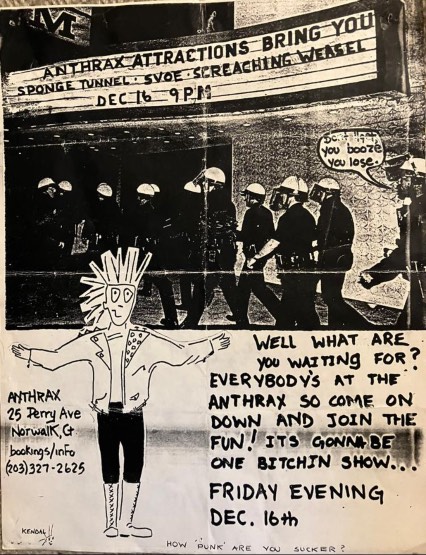 M
ANTHRAX ATTRACTIONS BRING YOU
SPONGE TUNNEL · SVOE · SCREACHING WEASEL
DEC 16 9 PM
you booze
you lose.
WELL WHAT ARE
YOU WAITING FOR?
EVERYBODY'S AT THE
ANTHRAX SO COME ON
DOWN AND JOIN THE
FUN! ITS GONNA BE
ONE BITCHIN SHOW...
FRIDAY EVENING
DEC. 16th
ANTHRAX
25 Perry Ave
Norwalk, Ct
bookings/info
(203)327-2625
KENDALL
HOW "PUNK" ARE YOU SUCKER?